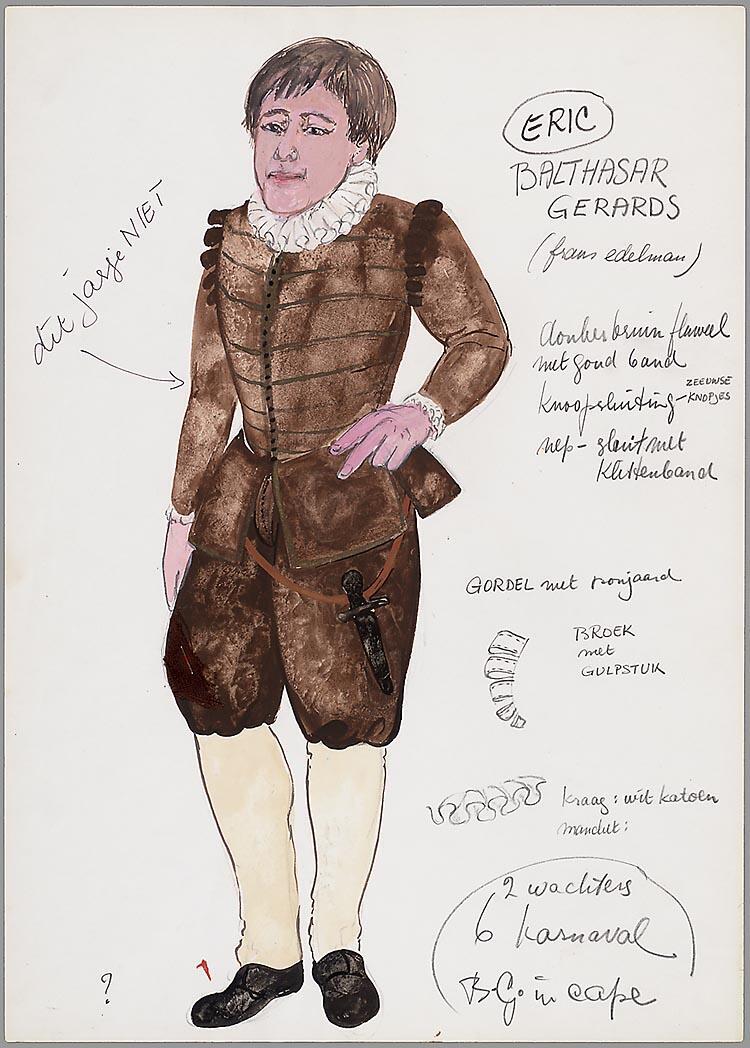 ERIC
BALTHASAR
GERARDS
(frans edelman)
dit jasje NIET
donkerbruin fluweel
met goud band
knoopsluiting - ZEEUWSE
KNOPJES
nep - sluit met
klittenband
GORDEL met ponjaard
BROEK
met
GULPSTUK
kraag : wit katoen
manchet :
2 wachters
6 karnaval
B.G. in cape
?